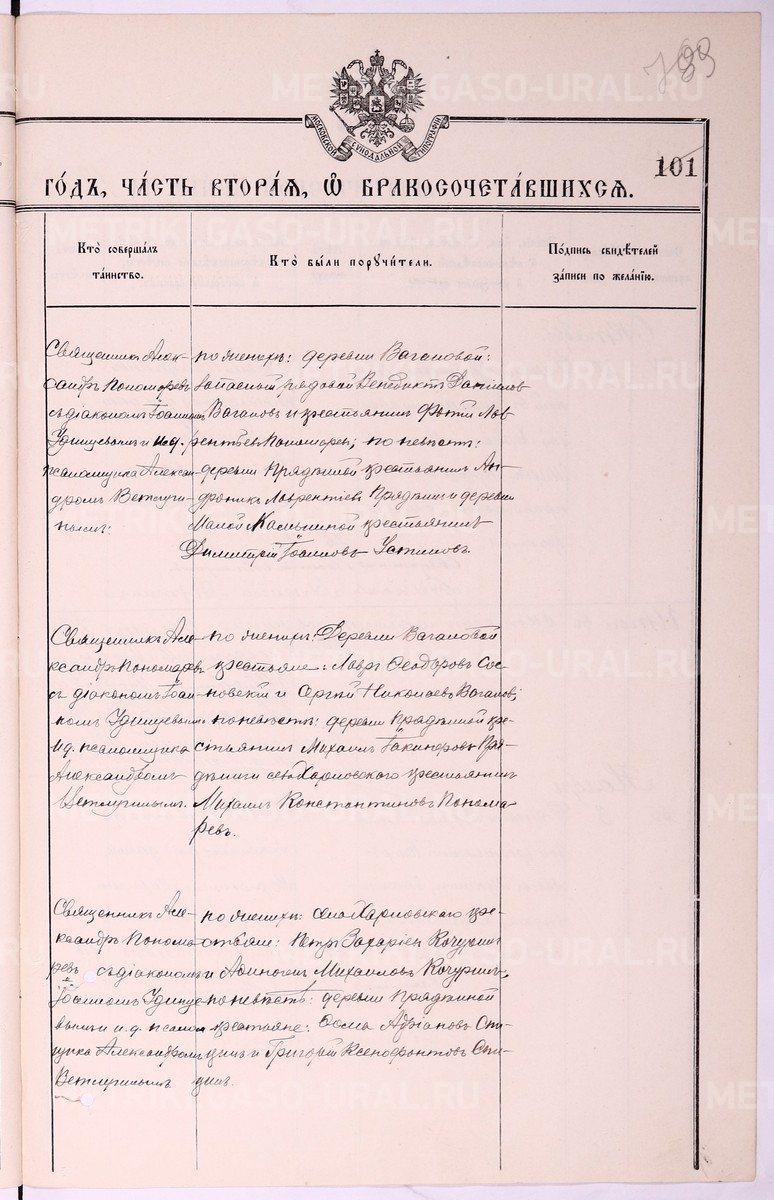 789
МОСКОВСКОЙ СѴНОДАЛЬНОЙ ТИПОГРАФІИ
101
ГО́ДЪ, ЧА́СТЬ ВТОРА́Я, Ѡ҆ БРАКОСОЧЕТА́ВШИХСЯ.
Кто̀ соверша́лъ
та́инство.
Кто̀ бы́ли поручи́тели.
По́дпись свидѣ́телей
за́писи по жела́нію.
Священникъ Алек-
сандръ Пономаревъ
съ діакономъ Іоанномъ
и и.д.
псаломщика Алексан-
дромъ Ветлуги-
нымъ:
по женихѣ: деревни Вагановой:
запасный рядовой Венедиктъ Даниловъ
Вагановъ и крестьянинъ Фотій Лав-
рентьевъ Пономаревъ; по невѣстѣ:
деревни Прядеиной крестьянинъ Ан-
дроникъ Лаврентіевъ Прядеинъ и деревни
Малой крестьянинъ
Димитрій Іоанновъ Устиновъ.
Священникъ Але-
ксандръ Пономаревъ
съ діакономъ Іоан-
номъ
и.д. псаломщика
Александромъ
Ветлугинымъ.
по женихѣ: Деревни Вагановой
крестьяне: Лавръ Ѳеодоровъ Сос-
новскій и Сергій Николаевъ Вагановъ;
по невѣстѣ: деревни Прядеиной кре-
стьянинъ Михаилъ Іакинѳовъ Пря-
деинъ и села Харловского крестьянинъ
Михаилъ Константиновъ Понома-
ревъ.
Священникъ Але-
ксандръ Понома-
ревъ съ діакономъ
Іоанномъ
и и.д. псалом-
щика Александромъ
Ветлугинымъ
по женихѣ: села Харловского кре-
стьяне: Петръ Захаріевъ Кочуринъ
и Аѳиногенъ Михаиловъ Кочуринъ;
по невѣстѣ: деревни Прядеиной
крестьяне: Ѳома Адріановъ Спи-
цинъ и Григорій Ксенофонтовъ Спи-
цинъ.
METRIKI.GASO-URAL.RU